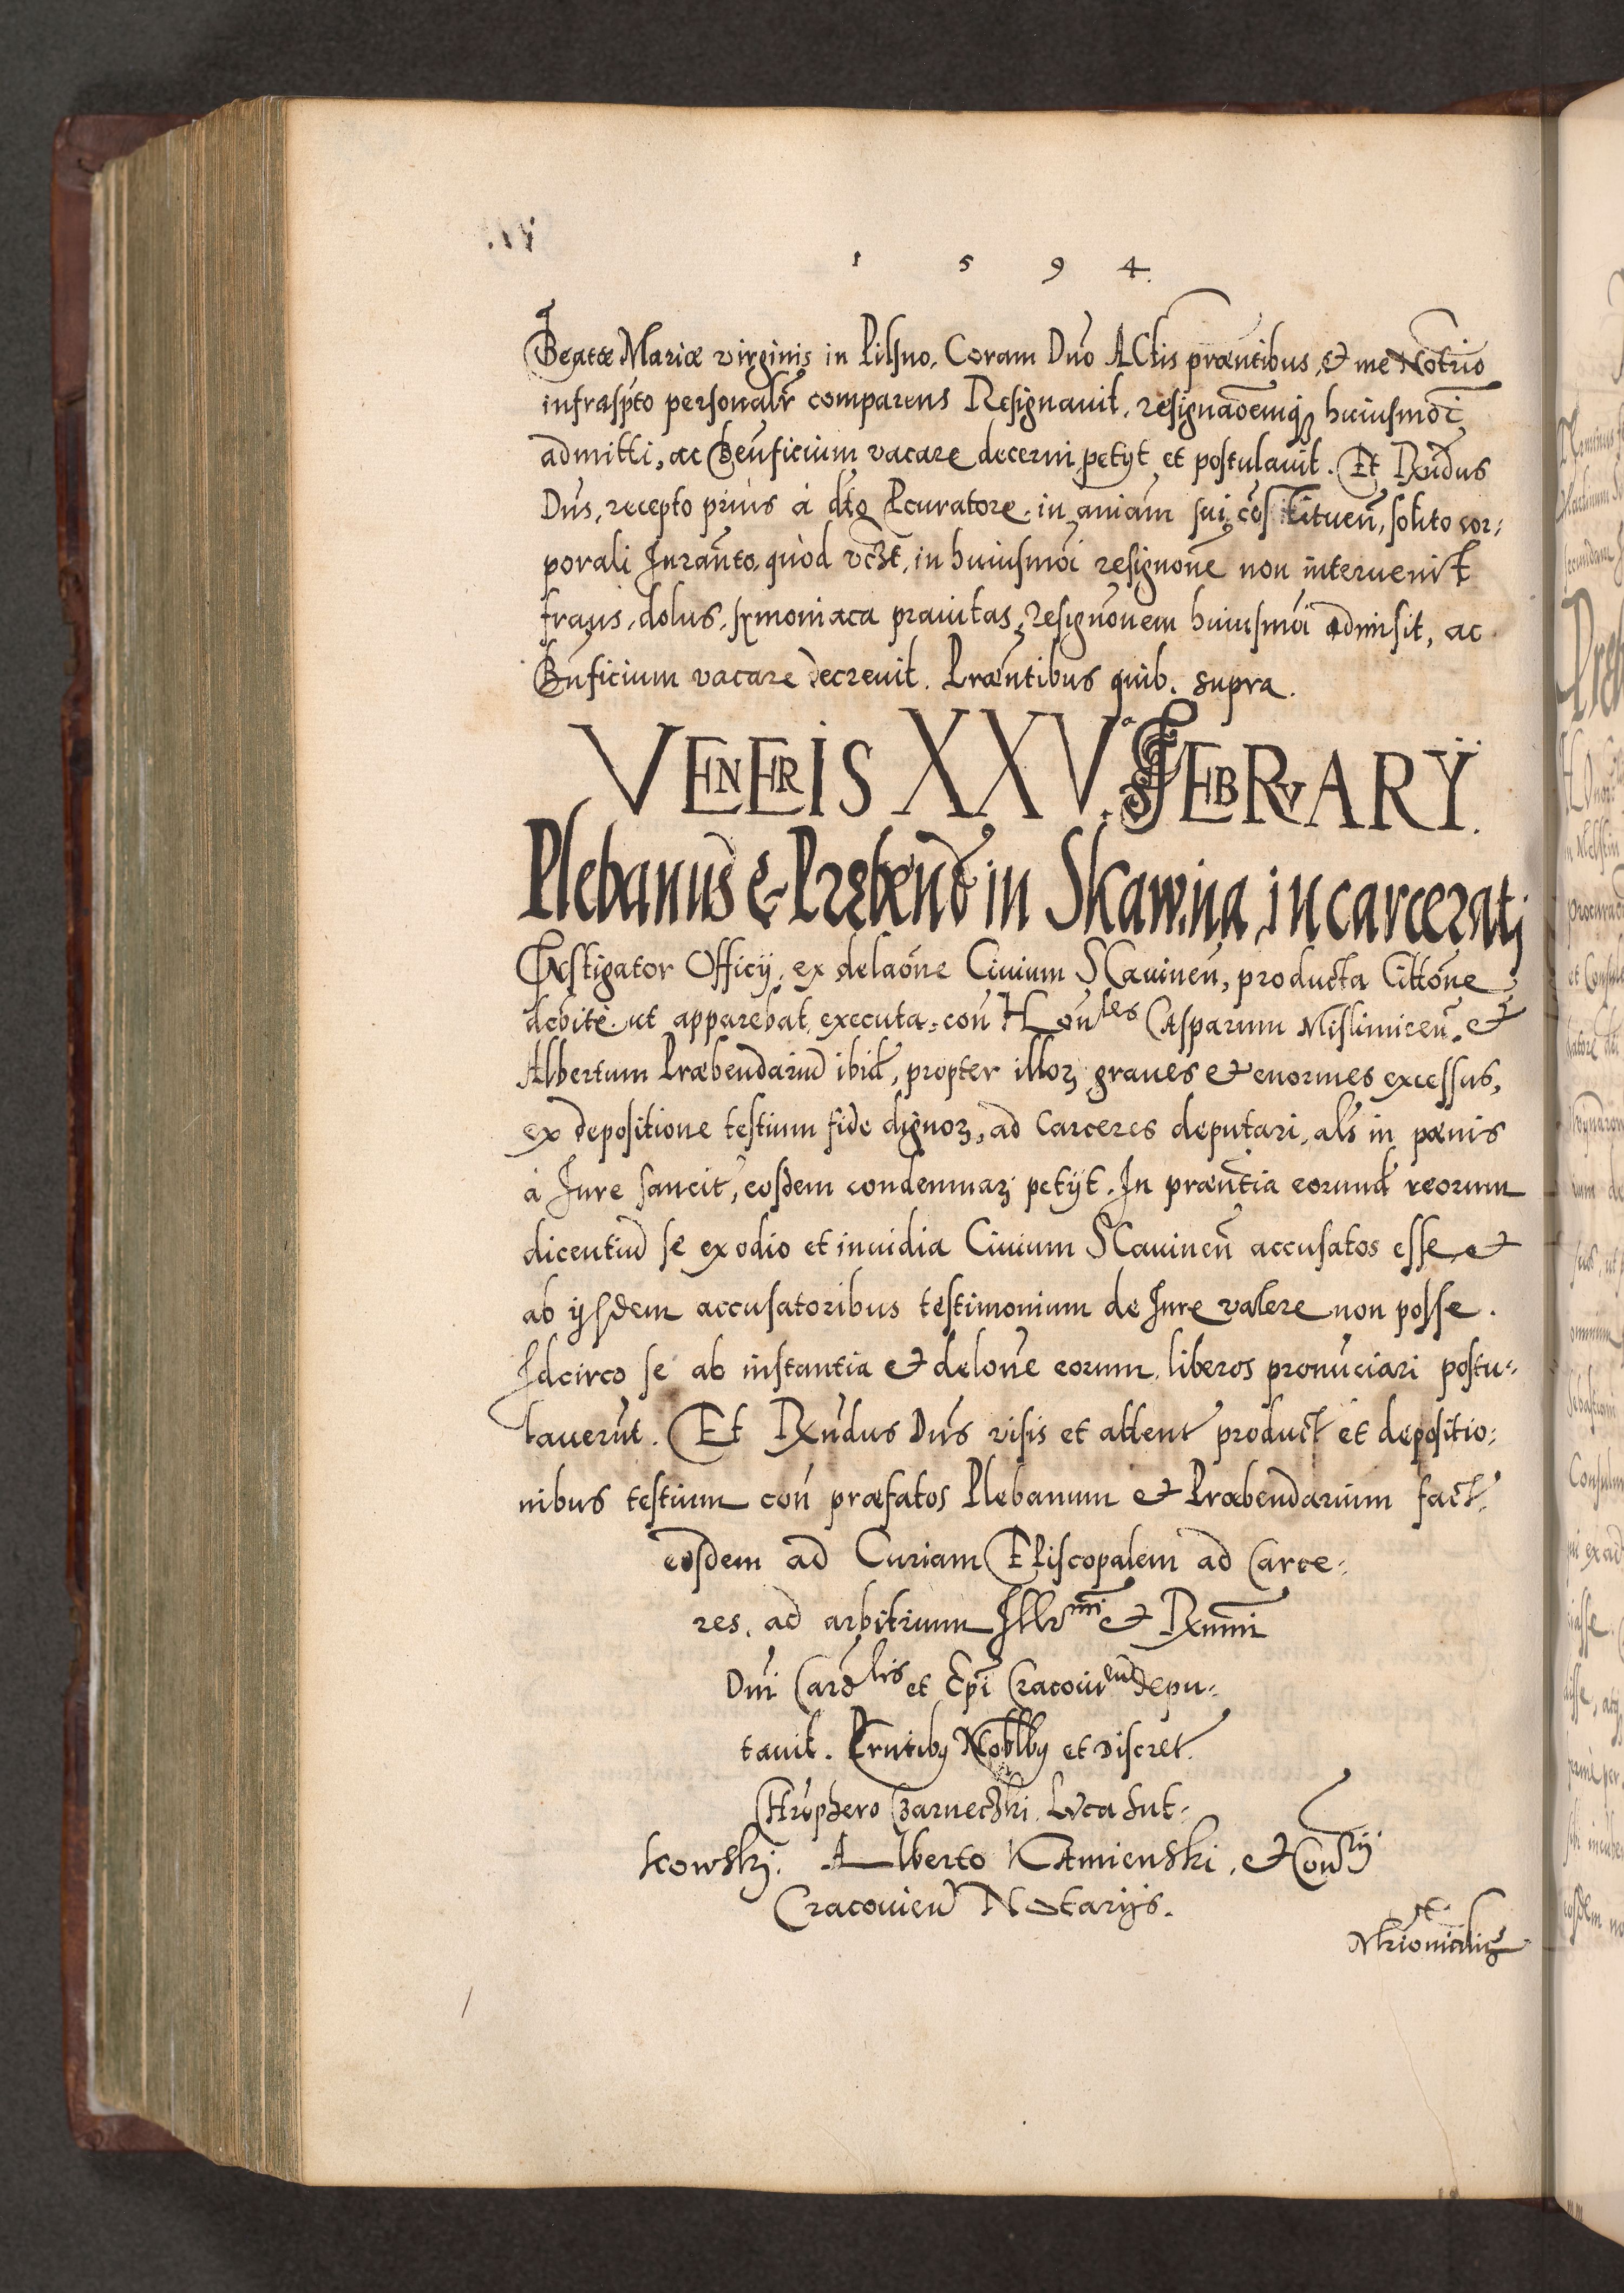 1 5 9 4.
Beatæ Mariæ virginis in Pilsno, Coram Dno Actis præntibus, et me Notrio
infrasptо personalr comparens Resignavit, resignaoemq huiusmoi
admitti, ac Benficium vacare decerni petyt et postulavit. Et Rndus
Dns, recepto prius à dto Pcuratore in aniam sui cōstituen, solito cor:
porali Iuranto, quòd vczt, in huiusmoi resignone non intervenit
fraus, dolus, symoniaca pravitas, Resignonem huiusmoi admisit, ac
Bnficium vacare decrevit. Præntibus quib. supra.
VENERIS XXVa. FEBRVARY.
Plebanus & Prebend in Skawina incarcerati
Instigator Officij, ex delaone Civium SCavinen, producta Cittone
debitè ut apparebat, executa, con Honles Casparum Mislimicen, et
Albertum Præbendariu ibid, propter illoꝝ graves et enormes excessus,
ex depositione testium fide dignoꝝ, ad Carceres deputari, als in pœnis
à Iure sancit, eosdem condemnari petijt. In præntia eorund reorum
dicentiu se ex odio et invidia Civium SCavinen accusatos esse, et
ab ijsdem accusatoribus testimonium de Iure valere non posse.
Idcirco se ab instantia et delone eorum, liberos pronuciari postu:
laverut. Et Rndus Dns visis et attent product et depositio:
nibus testium con præfatos Plebanum et Præbendarium fact.
eosdem ad Curiam Episcopalem ad Carce:
res, ad arbitrium Illrmi et Rxmi
Dni Cardlis et Epi Cracovien depu:
tavit. Prntibq Noblbq et Discret
Chrophero Czarneczki, Luca Sut:
kowskj. Alberto Kamienski, et Conrij
Cracovien Notarijs.
et
Mtrionialis